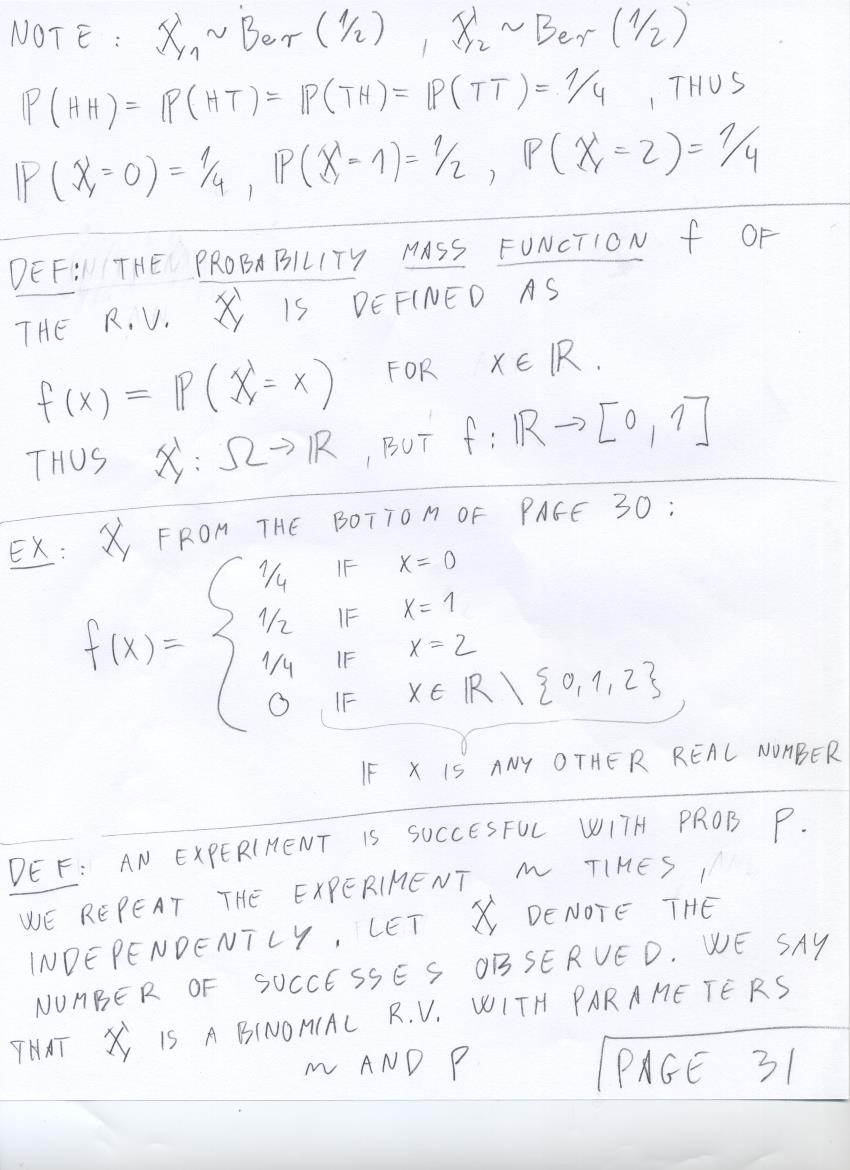 NOTE: X₁ ~ Ber(1/2), X₂ ~ Ber(1/2)
ℙ(HH)=ℙ(HT)=ℙ(TH)=ℙ(TT)=1/4, THUS
ℙ(X=0)=1/4, ℙ(X=1)=1/2, ℙ(X=2)=1/4
DEF: THE PROBABILITY MASS FUNCTION f OF
THE R.V. X IS DEFINED AS
f(x) = ℙ(X=x) FOR x∈ℝ.
THUS X: Ω→ℝ, BUT f: ℝ→[0,1]
EX: X FROM THE BOTTOM OF PAGE 30:
1/4 IF x=0
1/2 IF x=1
f(x)= {
1/4 IF x=2
0 IF x∈ℝ\{0,1,2}
IF x IS ANY OTHER REAL NUMBER
DEF: AN EXPERIMENT IS SUCCESFUL WITH PROB P.
WE REPEAT THE EXPERIMENT n TIMES,
INDEPENDENTLY. LET X DENOTE THE
NUMBER OF SUCCESSES OBSERVED. WE SAY
THAT X IS A BINOMIAL R.V. WITH PARAMETERS
n AND P
PAGE 31